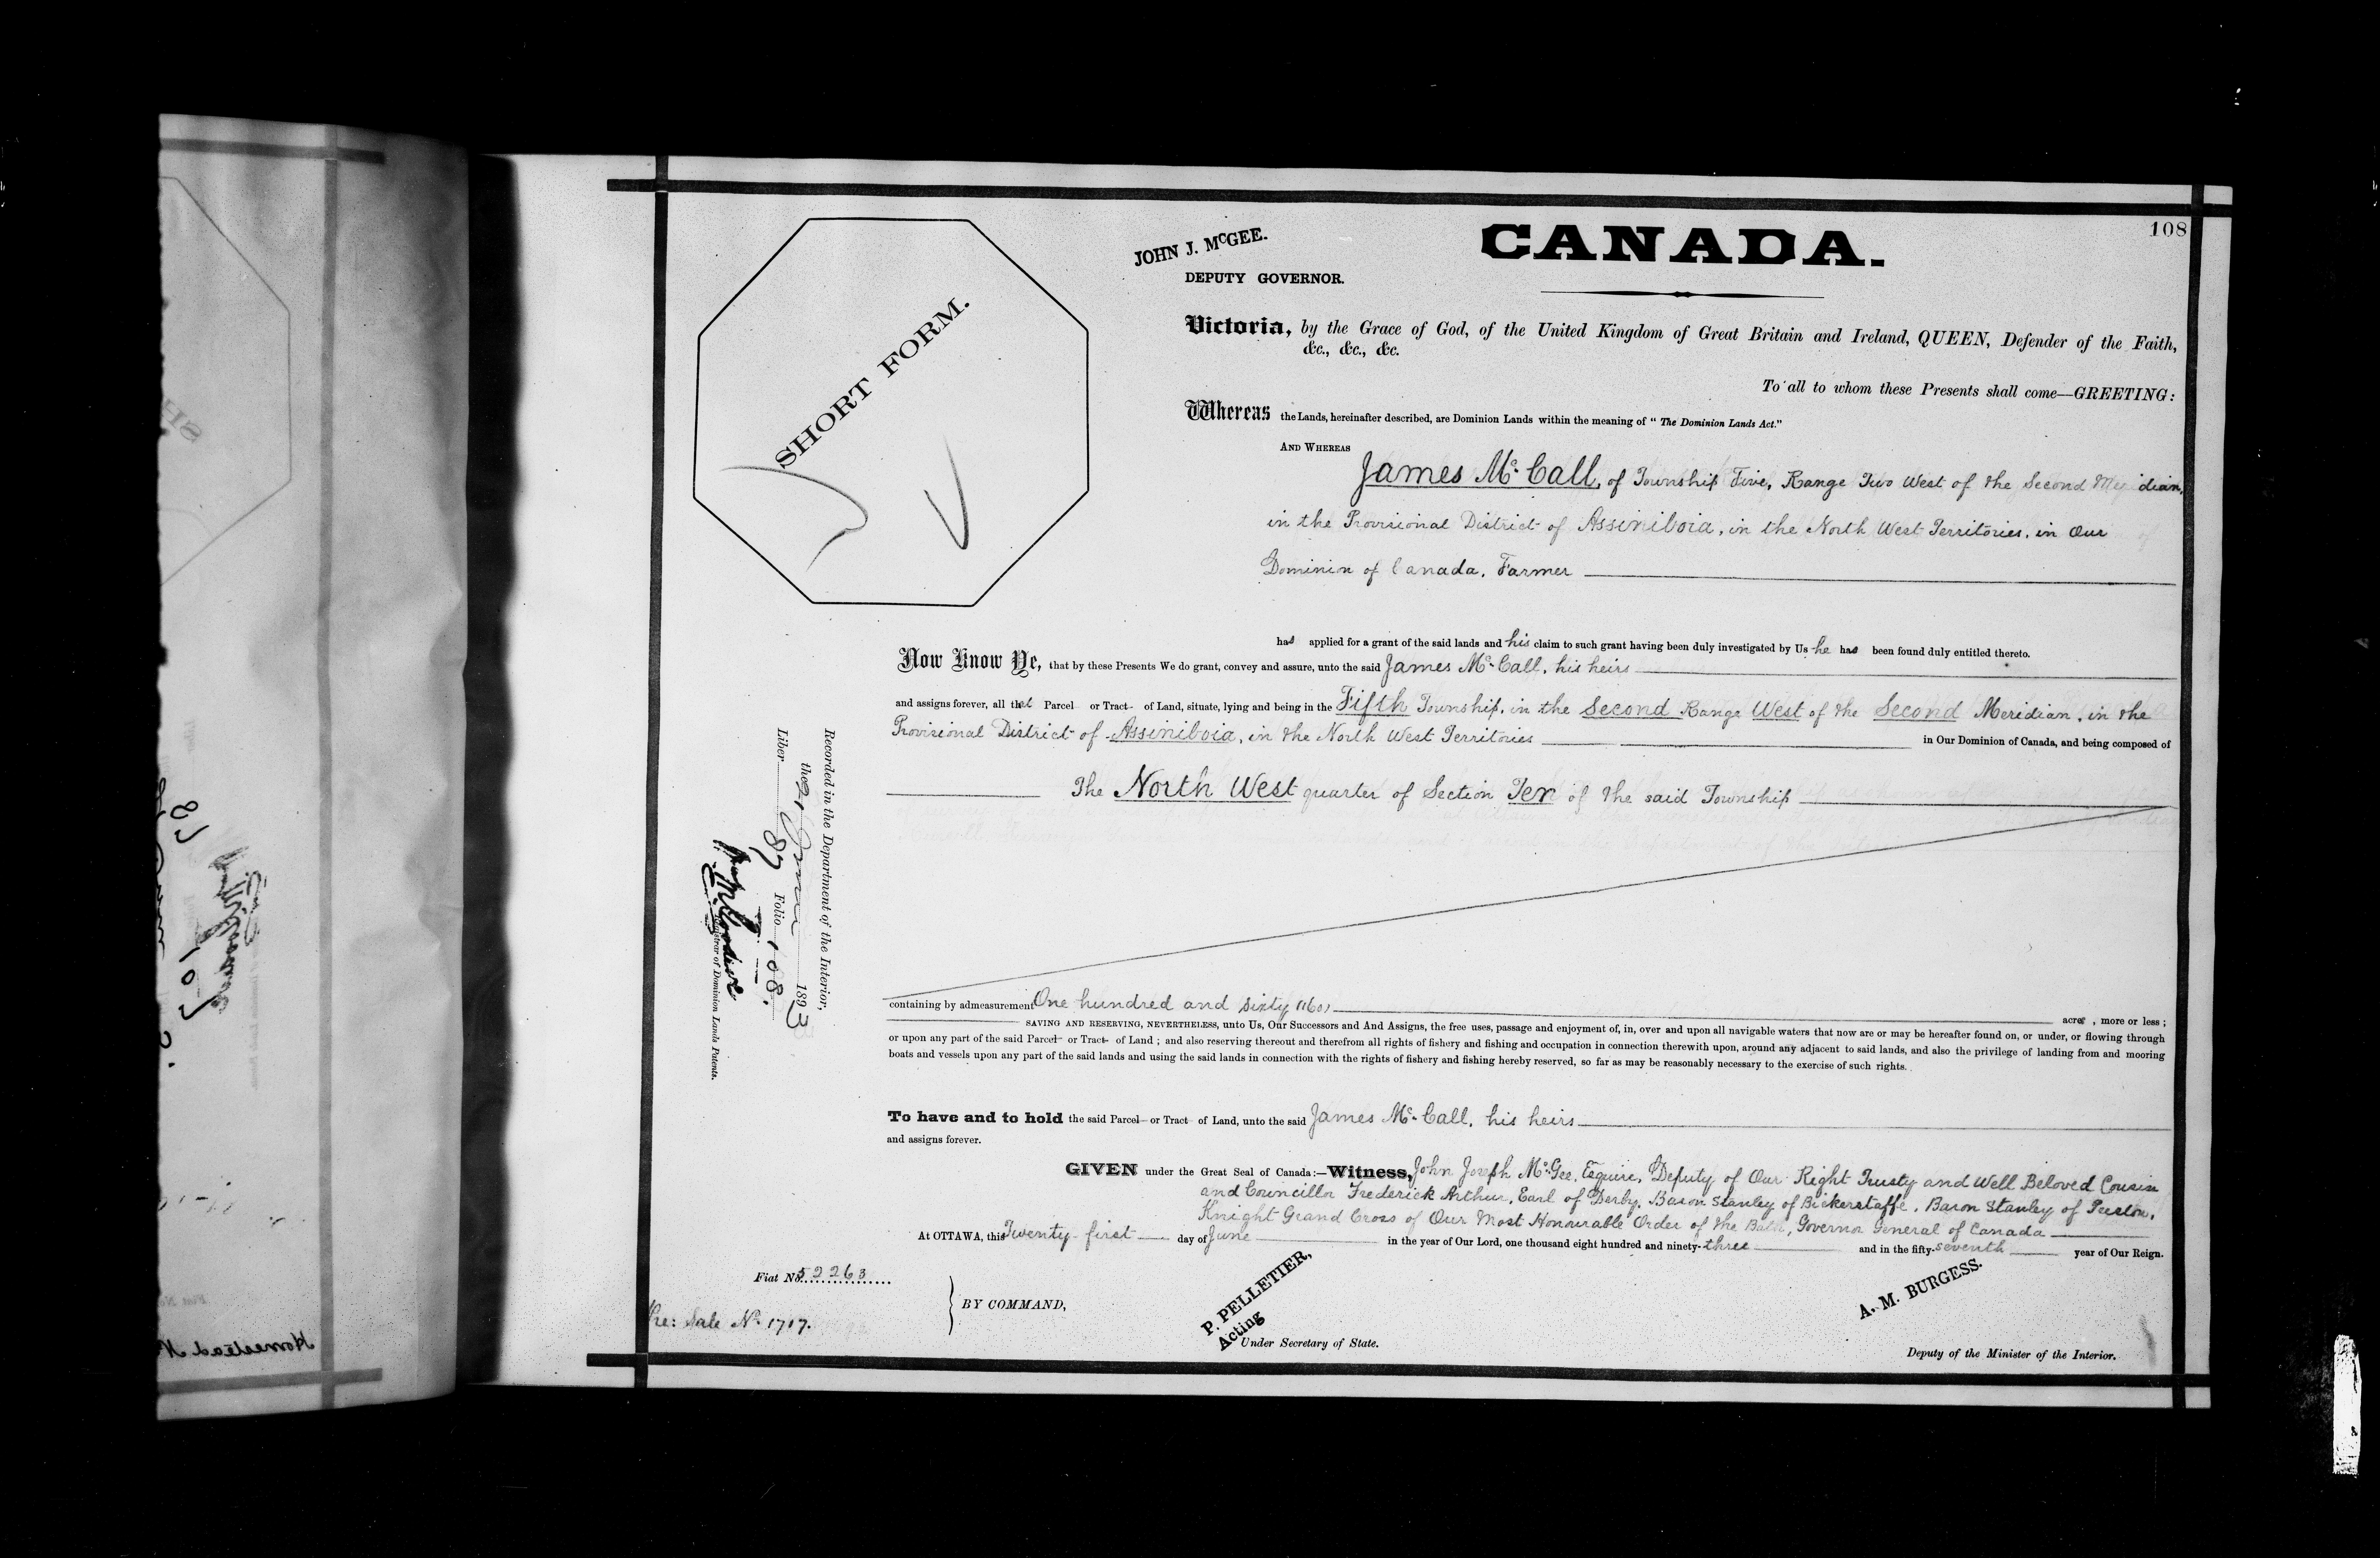 108
CANADA.
JOHN J. McGEE.
DEPUTY GOVERNOR.
SHORT FORM.
Victoria, by the Grace of God, of the United Kingdom of Great Britain and Ireland, QUEEN, Defender of the Faith,
&c., &c., &c.
To all to whom these Presents shall come—GREETING:
Whereas the Lands, hereinafter described, are Dominion Lands within the meaning of "The Dominion Lands Act."
AND WHEREAS
James Mc Call, of Township Five, Range Two West of the Second Meridian,
in the Provisional District of Assiniboia, in the North West Territories, in Our
Dominion of Canada, Farmer
has applied for a grant of the said lands and his claim to such grant having been duly investigated by Us he has been found duly entitled thereto.
Now Know Ye, that by these Presents We do grant, convey and assure, unto the said James Mc Call, his heirs
and assigns forever, all that Parcel or Tract of Land, situate, lying and being in the Fifth Township, in the Second Range West of the Second Meridian, in the
Provisional District of Assiniboia, in the North West Territories in Our Dominion of Canada, and being composed of
The North West quarter of Section Ten of the said Township
containing by admeasurement One hundred and sixty (160) acres, more or less;
SAVING AND RESERVING, NEVERTHELESS, unto Us, Our Successors and And Assigns, the free uses, passage and enjoyment of, in, over and upon all navigable waters that now are or may be hereafter found on, or under, or flowing through
or upon any part of the said Parcel or Tract of Land; and also reserving thereout and therefrom all rights of fishery and fishing and occupation in connection therewith upon, around any adjacent to said lands, and also the privilege of landing from and mooring
boats and vessels upon any part of the said lands and using the said lands in connection with the rights of fishery and fishing hereby reserved, so far as may be reasonably necessary to the exercise of such rights.
To have and to hold the said Parcel or Tract of Land, unto the said James Mc Call, his heirs
and assigns forever.
GIVEN under the Great Seal of Canada:—Witness, John Joseph McGee, Esquire, Deputy of Our Right Trusty and Well Beloved Cousin
and Councillor Frederick Arthur, Earl of Derby, Baron Stanley of Bickerstaffe, Baron Stanley of Preston,
Knight Grand Cross of Our Most Honourable Order of the Bath, Governor General of Canada
At OTTAWA, this Twenty-first day of June in the year of Our Lord, one thousand eight hundred and ninety-three and in the fifty-seventh year of Our Reign.
Fiat No. 52263
Re: Sale No. 1717.
BY COMMAND,
P. PELLETIER,
Acting
Under Secretary of State.
A. M. BURGESS.
Deputy of the Minister of the Interior.
Recorded in the Department of the Interior,
the 21 June 1893
Liber 87 Folio 108.
Registrar of Dominion Lands Patents.